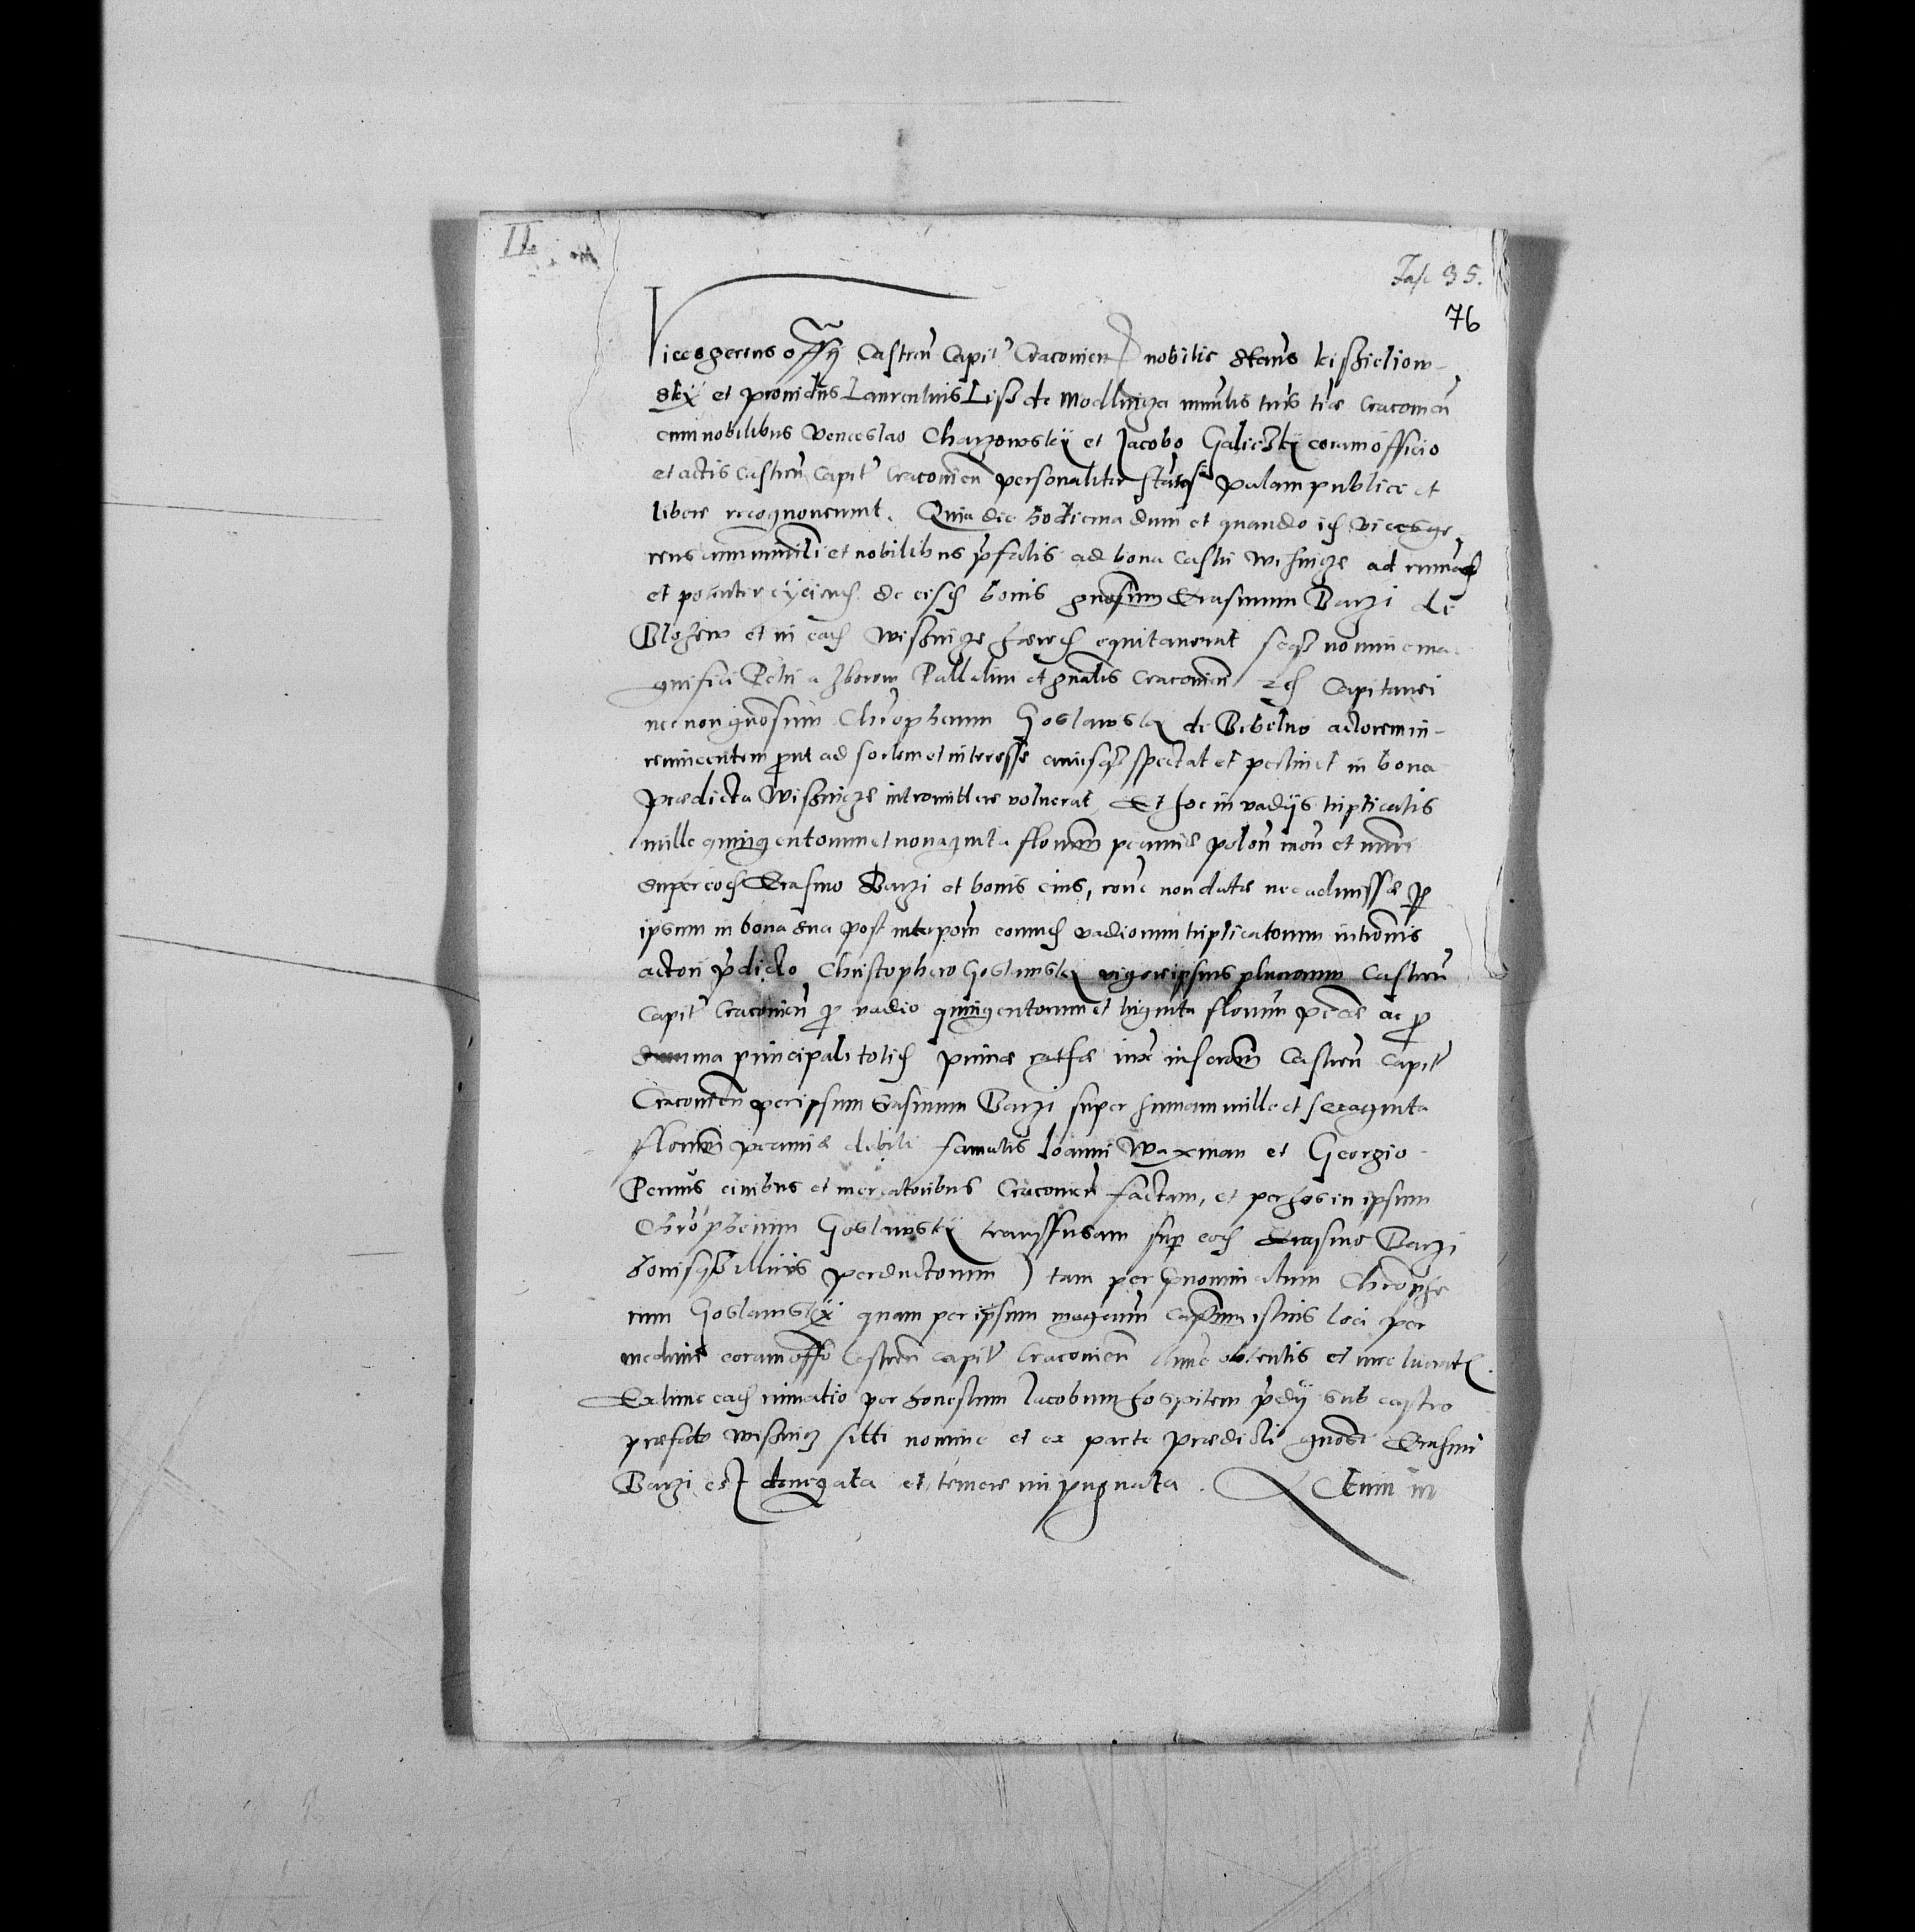 II
Fasc 35.
76
Vicesgerens offij Castren Capit Cracovien nobilis Stans kisszieliow-
skÿ et providus Laurentius Lisz de Modlnÿcza minlis tris trae Cracovien
cum nobilibus Venceslao Charzowskÿ et Jacobo Galiczkÿ coram officio
et actis castren Capit Cracovien personaliter stantes palam publice et
libere recognoverunt. Quia die hodierna dum et quando ich vicesge
rens cum minili et nobilibus pfatis ad bona castri Wisznicze ad
et potenter eÿciend de eisd bonis gnosum Erasmum Barzi de
Blozew et in ead Wisznicze hered equitaverat seqz nomine ma
gnifici Petri a Zborow Pallatini et gnalis Cracovien Capitanei
nec non gnosum Chrophorum Goslawskÿ de Bebelno actorem in-
reminentem put ad sortem et interesse cuiusqz spectat et pertinet in bona
praedicta Wisznicze intromittere voluerat, Et hoc in vadÿs triplicatis
mille quingentorum et nonaginta floren pecuniae polon mon et nmri
super eod Erasmo Barzi et bonis eius, rone non datae nec admissae p
ipsum in bona sua post interpom eorund vadiorum triplicatorum intromis
actori pdicto Christophero Goslawskÿ vigore ipsius lucrorum Castren
Capit Cracovien p vadio quingentorum et triginta florenum ac p
summa principali primae rathae iux inscrom Castren Capit
Cracovien per ipsum Erasmum Barzi super summam mille et sexaginta
floren pecuniae debiti famatis Joanni Waxman et Georgio
Pernus civibus et mercatoribus Cracovien factam, et per hos in ipsum
Chrophorum Goslawskÿ transfusam sup eod Erasmo Barzi
bonisqz illius perductorum) tam per pnominatum Chrophe
rum Goslawskÿ quam per ipsum istius loci per
coram offo Castren capit Cracovien obtentis et iure lucratis.
Ex tunc ead rumatio per honestum Jacobum hospitem pdÿ sub castro
praefato Wisznicz sitti nomine et ex parte praedicti gnosi Erasmi
Barzi est denegata et temere impugnata.